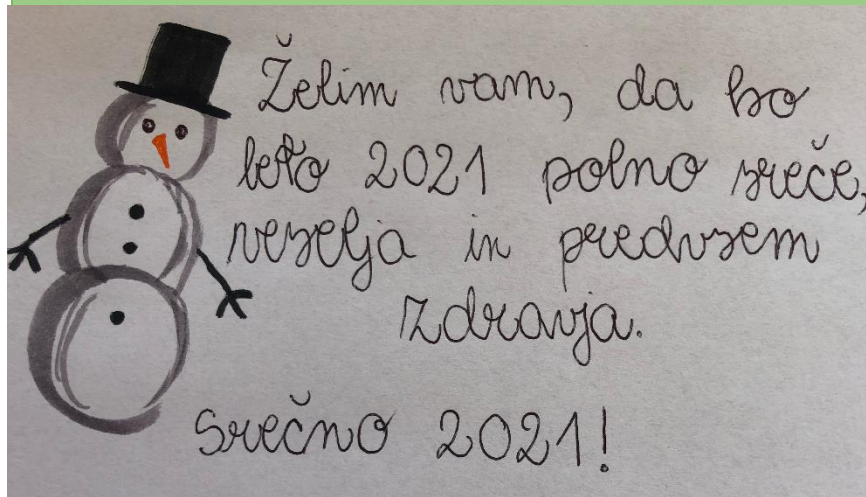 Želim vam, da bo
leto 2021 polno sreče,
veselja in predvsem
zdravja.
Srečno 2021!